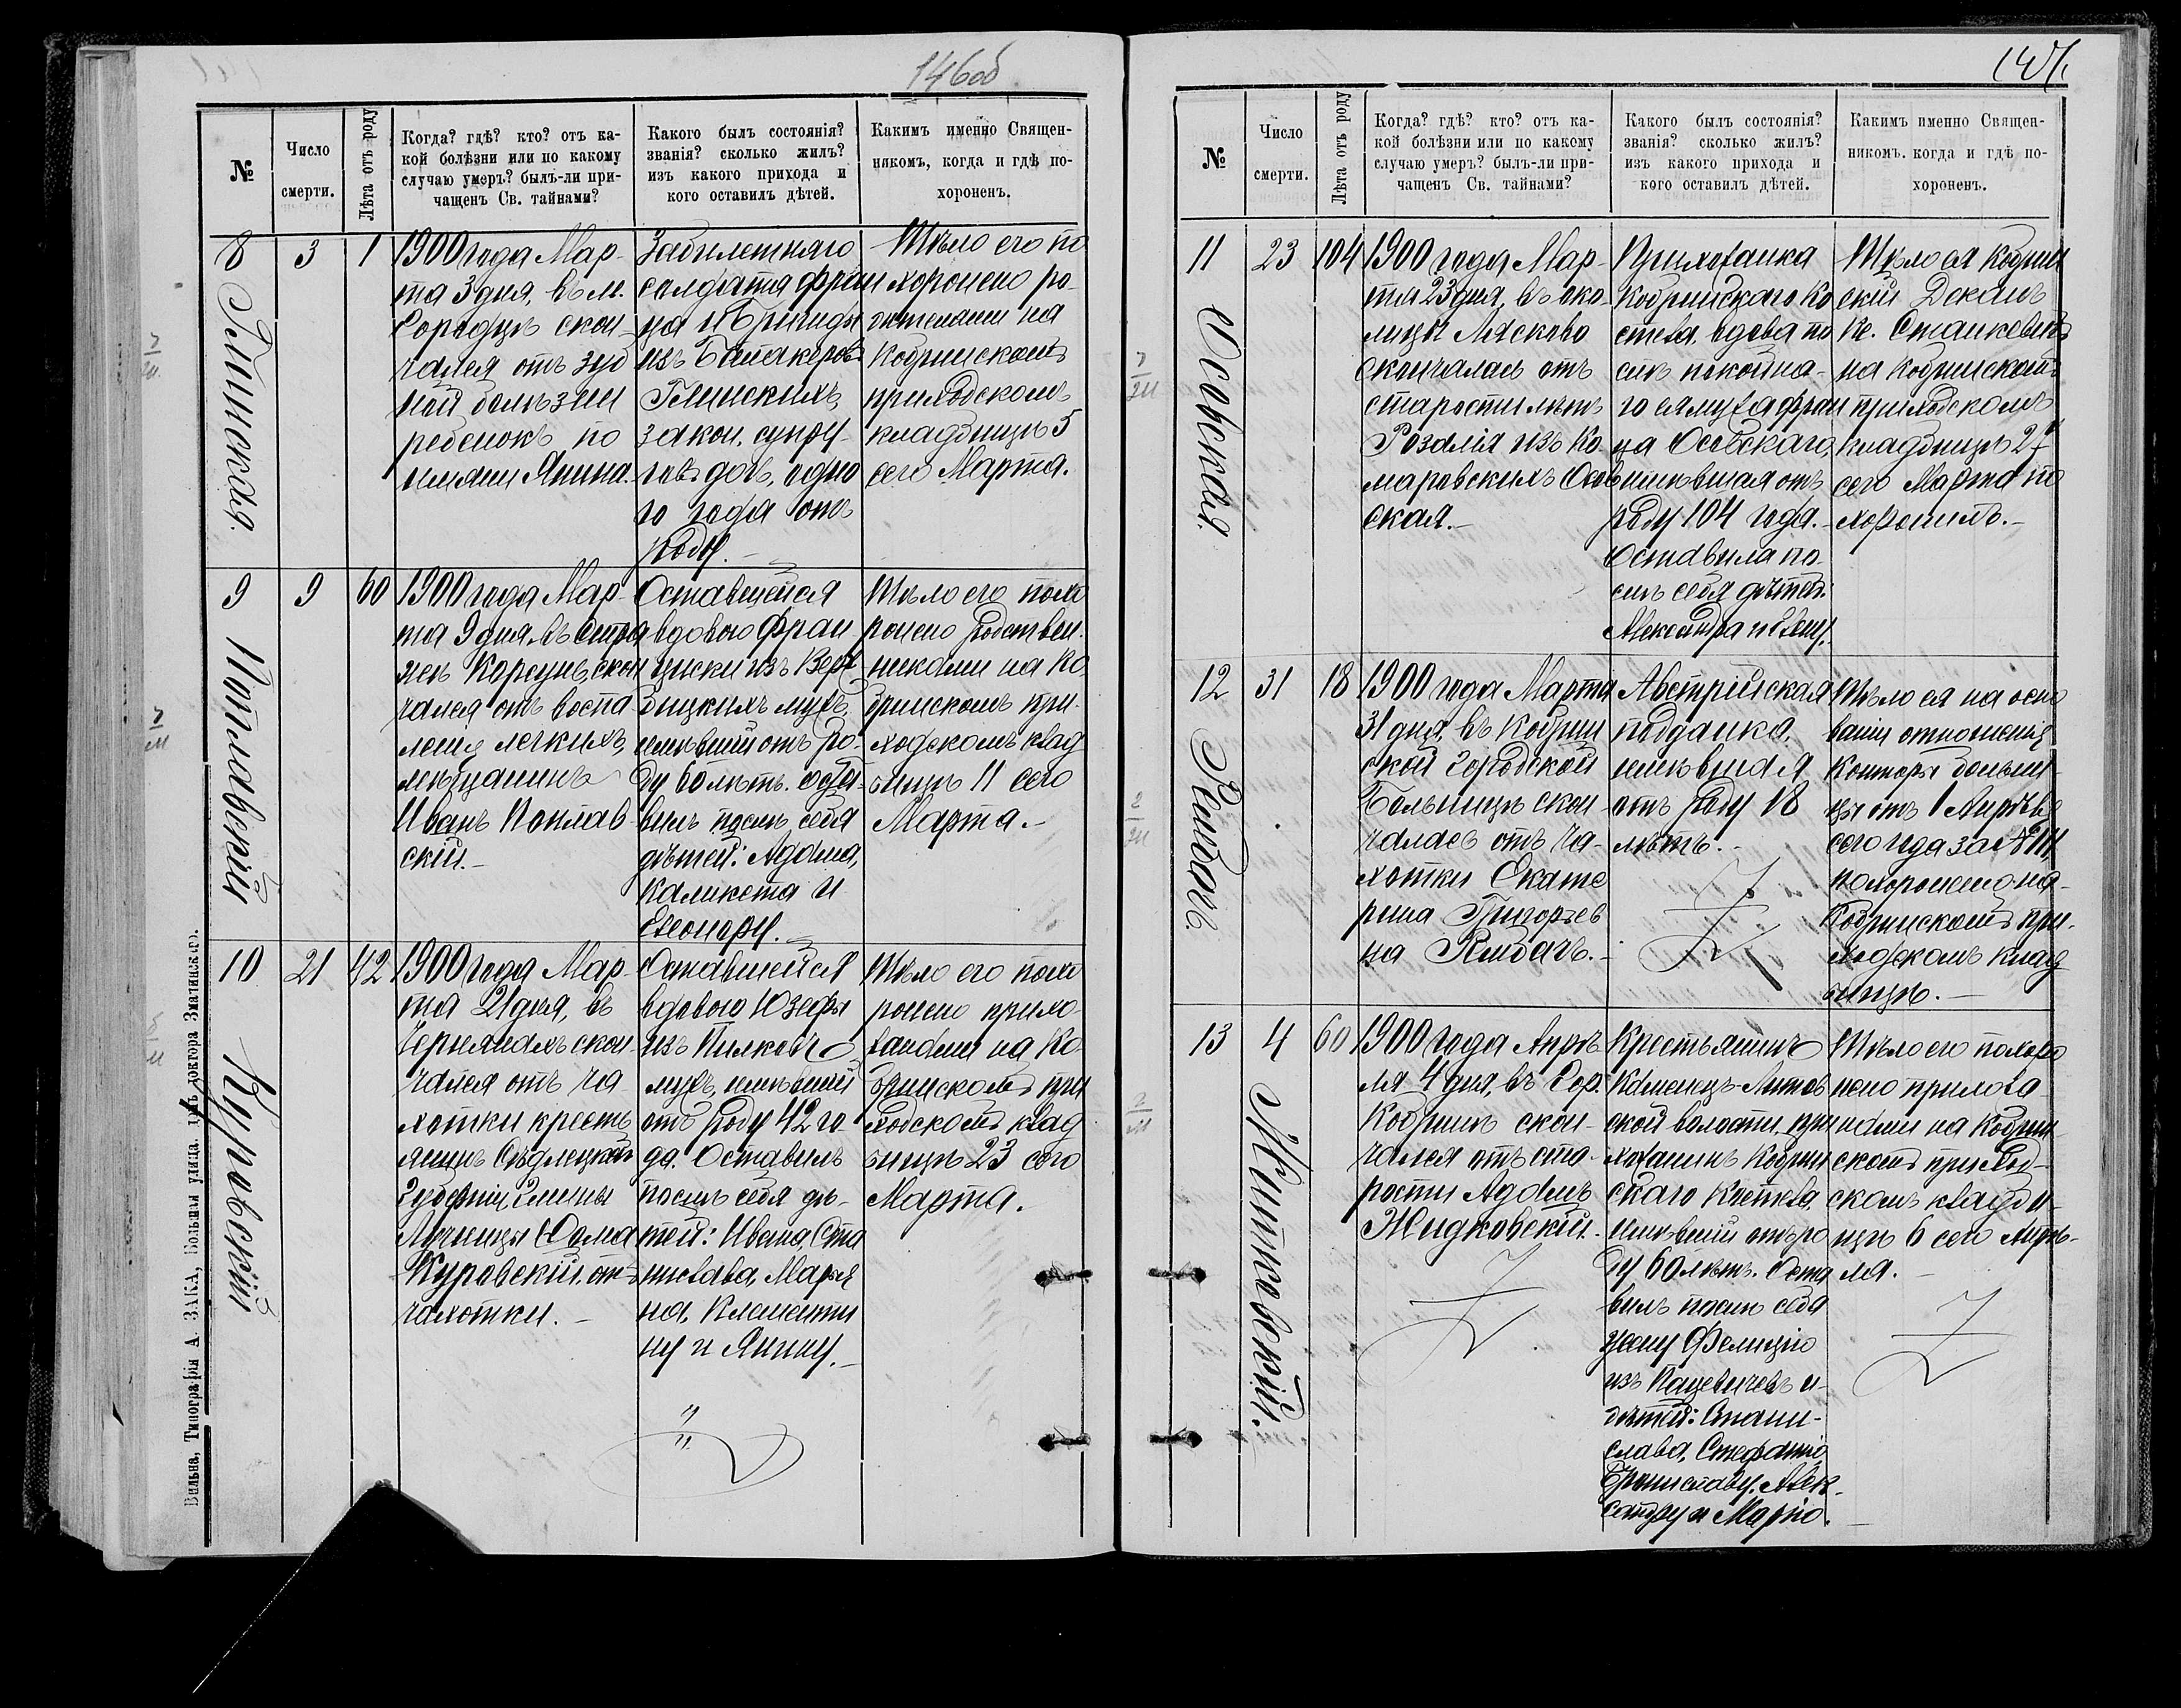 146об
№
Число
смерти.
Лѣта отъ роду
Когда? гдѣ? кто? отъ ка-
кой болѣзни или по какому
случаю умеръ? былъ-ли при-
чащенъ Св. тайнами?
Какого былъ состоянія?
званія? сколько жилъ?
изъ какого прихода и
кого оставилъ дѣтей.
Какимъ именно Священ-
никомъ, когда и гдѣ по-
хороненъ.
8
Глинская.
3
1
1900 года Мар-
та 3 дня, въ м.
Городцѣ скон-
чался отъ зуб
ной болѣзни
ребенокъ по
имени Янина.
Забилетнаго
солдата Фран
ца и Бригиды
изъ
Глинскихъ,
закон. супру-
говъ дочь, одно
го года отъ
роду.
Тѣло его по
хоронено ро-
дителями на
Кобринскомъ
приходскомъ
кладбищѣ 5
сего Марта.
9
Поплавскій
9
60
1900 года Мар-
та 9 дня, въ
скон
чался отъ воспа-
ленія легкихъ,
мѣщанинъ
Иванъ Поплав
скій.-
Оставшейся
вдовою Фран
циски изъ Верх
бицкихъ мужъ,
имѣвшій отъ ро-
ду 60 лѣтъ. оста-
вилъ послѣ себя
дѣтей: Адама,
Каликста и
Елеонору.
Тѣло его похо
ронено родствен.
никами на Ко
бринскомъ при-
ходскомъ клад
бищѣ 11 сего
Марта.-
10
Куровскій
21
42
1900 года Мар-
та 21 дня, въ
скон-
чался отъ ча-
хотки кресть
янинъ Сѣдлецкой
Губерніи Гмины
Куровскій, отъ
чахотки.-
Оставшейся
вдовою Юзефы
изъ
мужъ, имѣвшій
отъ роду 42 го-
да. Оставилъ
послѣ себя дѣ-
тей: Ивана, Ста
нислава, Марья
на, Клементи
ну и Янину.-
Тѣло его похо
ронено прихо-
жанами на Ко-
бринскомъ при
ходскомъ клад
бищѣ 23 сего
Марта.
Вильна, Типографія А. ЗАКА, Большая улица,
147.
№
Число
смерти.
Лѣта отъ роду
Когда? гдѣ? кто? отъ ка-
кой болѣзни или по какому
случаю умеръ? былъ-ли при-
чащенъ Св. тайнами?
Какого былъ состоянія?
званія? сколько жилъ?
изъ какого прихода и
кого оставилъ дѣтей.
Какимъ именно Священ-
никомъ. когда и гдѣ по-
хороненъ.
11
Осовская.
23
104
1900 года Мар-
та 23 дня, въ око-
лицѣ Лясково
скончалась отъ
старости лѣтъ
Розалія изъ Ко
маровскихъ Осов
ская.-
Прихожанка
Кобринскаго Ко
стела, вдова по
слѣ покойна-
го ея мужа Фран
ца Осовскаго,
имѣвшая отъ
роду 104 года.-
Оставила по-
слѣ себя дѣтей:
Александра и
Тѣло ея Кобрин
скій Деканъ
Кс. Станкевичъ
на Кобринскомъ
приходскомъ
кладбищѣ 27
сего Марта по
хоронилъ.-
12
Рындачъ.
31
18
1900 года Марта
31 дня, въ Кобрин
ской городской
Больницѣ скон-
чалась отъ ча-
хотки Екате
рина Григорьев
на
Австрійская
подданка,
имѣвшая
отъ роду 18
лѣтъ.-
Тѣло ея на осно
ваніи отношенія
Конторы больни-
цы отъ 1 Апрѣля
сего года за №
похоронено на-
Кобринскомъ при-
ходскомъ клад
бищѣ.-
13
Житковскій.
4
60
1900 года Апрѣ
ля 4 дня, въ Гор.
Кобринѣ скон-
чался отъ ста-
рости Адамъ
Жидковскій.
Крестьянинъ
Каменецъ-Литов
ской волости, при
хожанинъ Кобрин
скаго Костела,
имѣвшій отъ ро
ду 60 лѣтъ. Оста
вилъ послѣ себя
жену Фелицію
изъ Пацевичевъ и
дѣтей: Стани-
слава, Стефанію
Брониславу, Алек-
сандру и Марію.
Тѣло его похоро
нено прихожа-
нами на Кобрин
скомъ приход-
скомъ кладби-
щѣ 6 сего Апрѣ-
ля.-